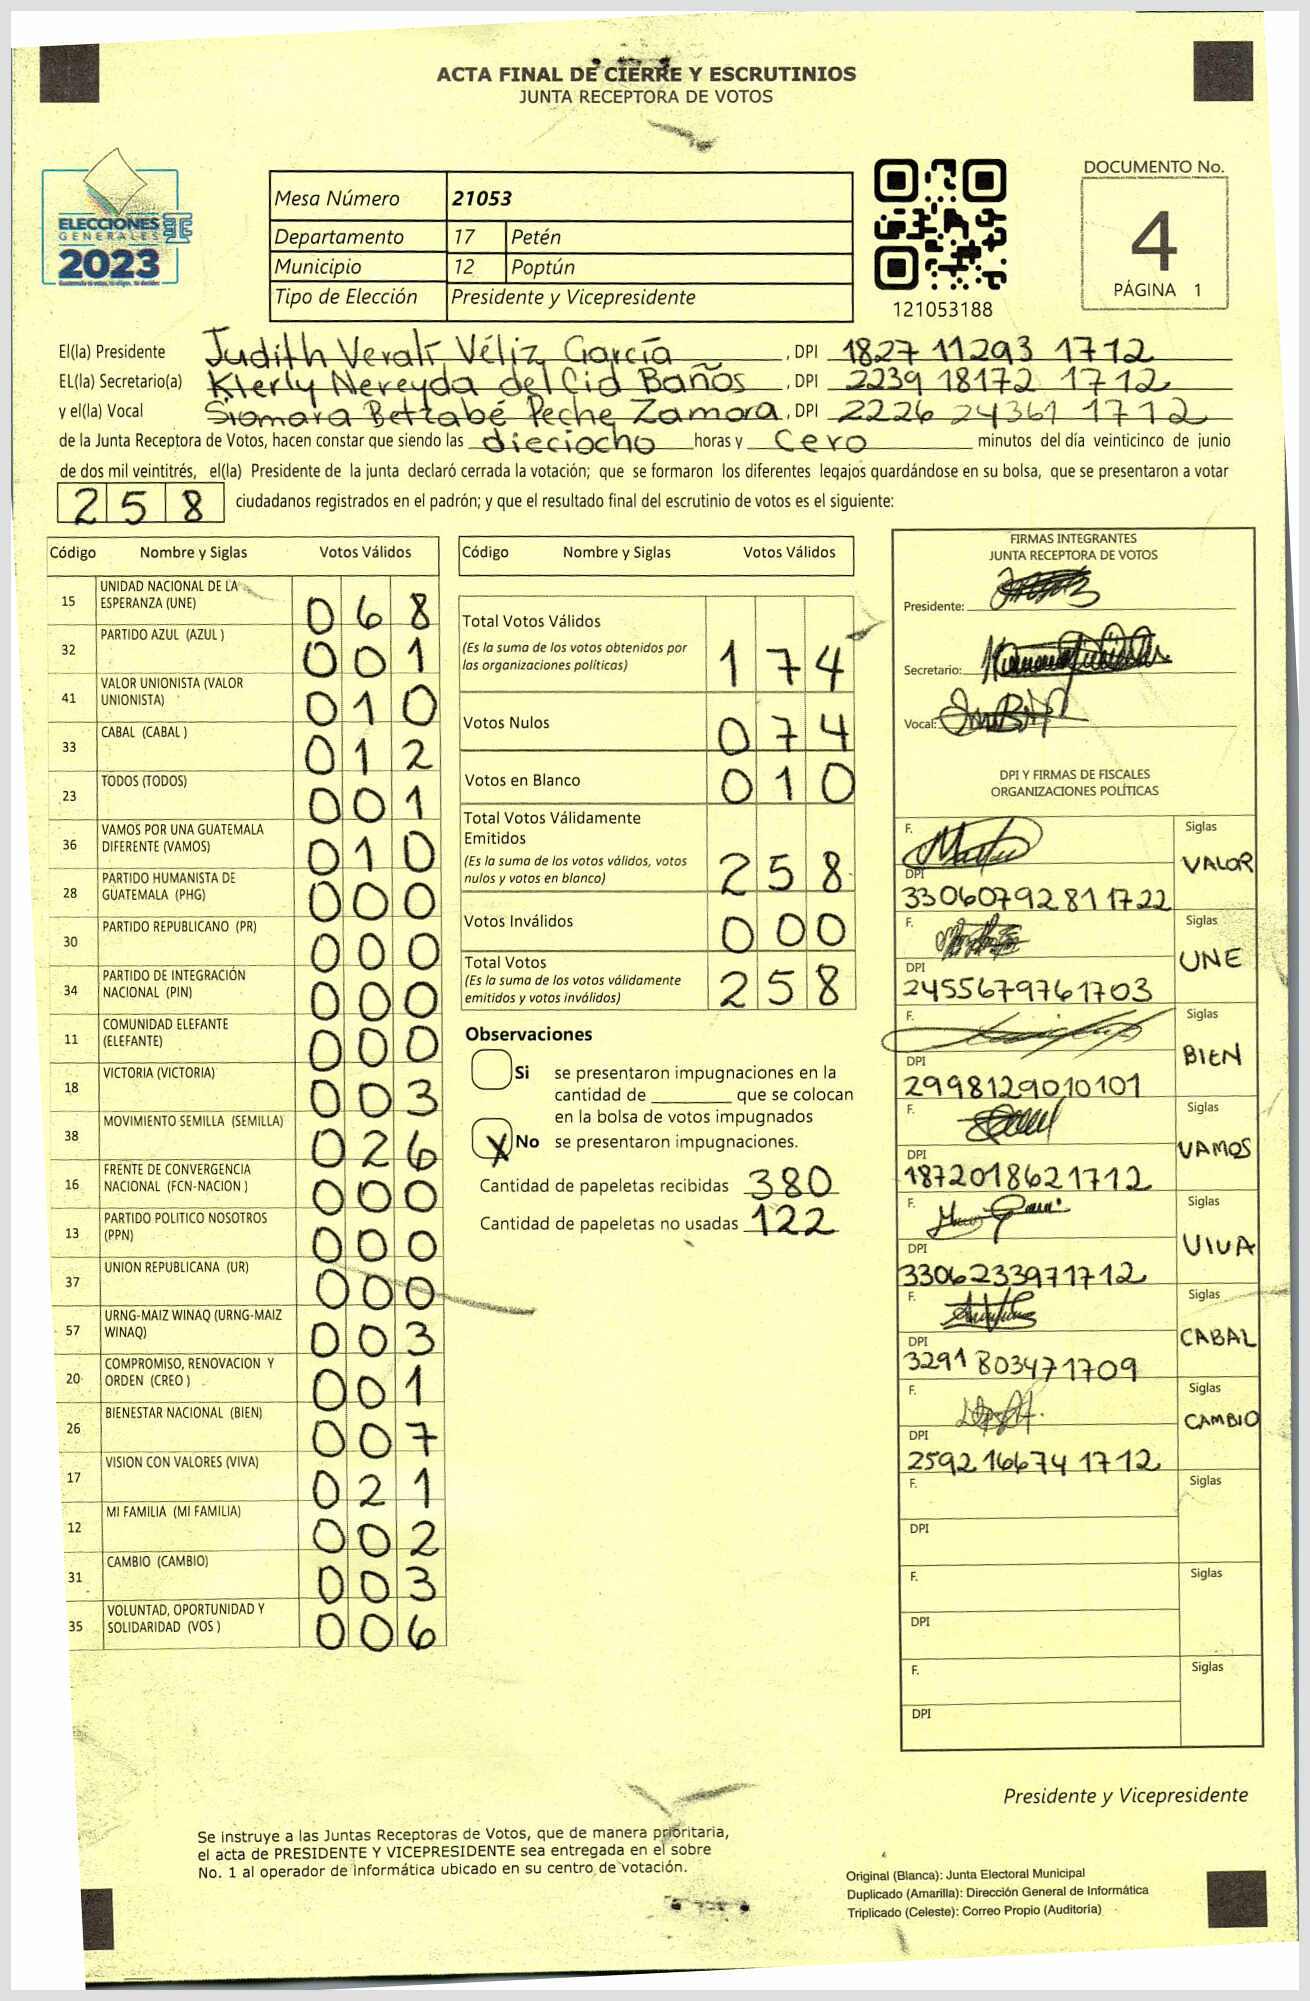 ACTA FINAL DE CIERRE Y ESCRUTINIOS
JUNTA RECEPTORA DE VOTOS
ELECCIONES
GENERALES
2023
Mesa Número 21053
Departamento 17 Petén
Municipio 12 Poptún
Tipo de Elección Presidente y Vicepresidente
121053188
DOCUMENTO No.
4
PÁGINA 1
El(la) Presidente Judith Veralí Véliz García, DPI 1827 11293 1712
EL(la) Secretario(a) Klerly Nereyda del Cid Baños, DPI 2239 18172 1712
y el(la) Vocal Siomara Betzabé Peche Zamora, DPI 2226 24361 1712
de la Junta Receptora de Votos, hacen constar que siendo las dieciocho horas y cero minutos del día veinticinco de junio
de dos mil veintitrés, el(la) Presidente de la junta declaró cerrada la votación; que se formaron los diferentes legajos quardándose en su bolsa, que se presentaron a votar
258 ciudadanos registrados en el padrón; y que el resultado final del escrutinio de votos es el siguiente:
Código Nombre y Siglas Votos Válidos
15 UNIDAD NACIONAL DE LA ESPERANZA (UNE) 068
32 PARTIDO AZUL (AZUL ) 001
41 VALOR UNIONISTA (VALOR UNIONISTA) 010
33 CABAL (CABAL ) 012
23 TODOS (TODOS) 001
36 VAMOS POR UNA GUATEMALA DIFERENTE (VAMOS) 010
28 PARTIDO HUMANISTA DE GUATEMALA (PHG) 000
30 PARTIDO REPUBLICANO (PR) 000
34 PARTIDO DE INTEGRACIÓN NACIONAL (PIN) 000
11 COMUNIDAD ELEFANTE (ELEFANTE) 000
18 VICTORIA (VICTORIA) 003
38 MOVIMIENTO SEMILLA (SEMILLA) 026
16 FRENTE DE CONVERGENCIA NACIONAL (FCN-NACION ) 000
13 PARTIDO POLITICO NOSOTROS (PPN) 000
37 UNION REPUBLICANA (UR) 000
57 URNG-MAIZ WINAQ (URNG-MAIZ WINAQ) 003
20 COMPROMISO, RENOVACION Y ORDEN (CREO ) 001
26 BIENESTAR NACIONAL (BIEN) 007
17 VISION CON VALORES (VIVA) 021
12 MI FAMILIA (MI FAMILIA) 002
31 CAMBIO (CAMBIO) 003
35 VOLUNTAD, OPORTUNIDAD Y SOLIDARIDAD (VOS ) 006
Código Nombre y Siglas Votos Válidos
Total Votos Válidos
(Es la suma de los votos obtenidos por
las organizaciones políticas) 174
Votos Nulos 074
Votos en Blanco 010
Total Votos Válidamente
Emitidos
(Es la suma de los votos válidos, votos
nulos y votos en blanco) 258
Votos Inválidos 000
Total Votos
(Es la suma de los votos válidamente
emitidos y votos inválidos) 258
Observaciones
Si se presentaron impugnaciones en la
cantidad de ________ que se colocan
en la bolsa de votos impugnados
X No se presentaron impugnaciones.
Cantidad de papeletas recibidas 380
Cantidad de papeletas no usadas 122
FIRMAS INTEGRANTES
JUNTA RECEPTORA DE VOTOS
Presidente:
Secretario:
Vocal:
DPI Y FIRMAS DE FISCALES
ORGANIZACIONES POLÍTICAS
F. Siglas
VALOR
DPI
3306079281 1722
F. Siglas
UNE
DPI
2455679761703
F. Siglas
BIEN
DPI
2998129010101
F. Siglas
VAMOS
DPI
1872018621712
F. Siglas
VIVA
DPI
3306233971712
F. Siglas
CABAL
DPI
3291 803471709
F. Siglas
CAMBIO
DPI
2592166741712
F. Siglas
DPI
F. Siglas
DPI
F. Siglas
DPI
Presidente y Vicepresidente
Se instruye a las Juntas Receptoras de Votos, que de manera prioritaria,
el acta de PRESIDENTE Y VICEPRESIDENTE sea entregada en el sobre
No. 1 al operador de informática ubicado en su centro de votación.
Original (Blanca): Junta Electoral Municipal
Duplicado (Amarilla): Dirección General de Informática
Triplicado (Celeste): Correo Propio (Auditoría)